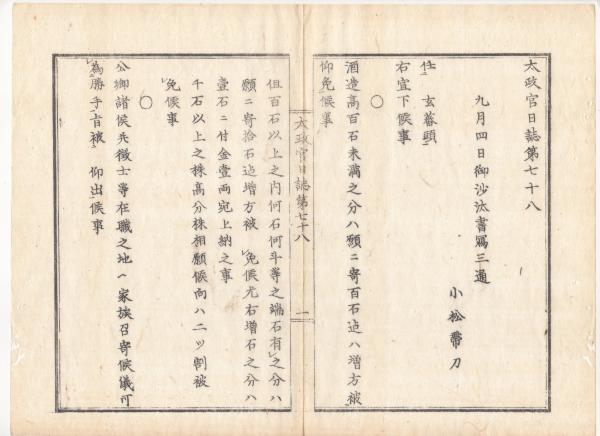 太政官日誌第七十八
九月四日御沙汰書寫三通
小松帶刀
任 玄蕃頭
右宣下候事
〇
酒造高百石未滿之分ハ願ニ寄百石迠ハ增方被
仰免候事
太政官日誌第七十八
一
但百石以上之内何石何斗等之端石有之分ハ
願ニ寄拾石迠增方被 免候尤右增石之分ハ
壹石ニ付金壹兩宛上納之事
千石以上之株高分株相願候向ハ二ツ割被
免候事
〇
公卿諸侯兵徴士等在職之地ヘ家族召寄候儀可
為勝手旨被 仰出候事